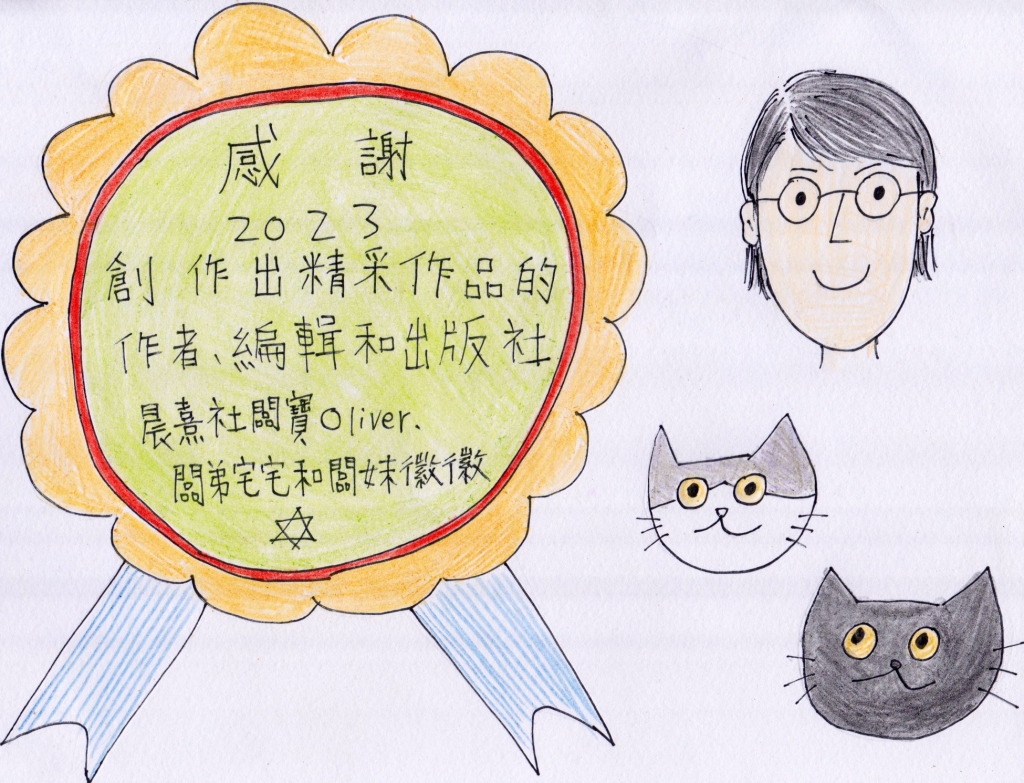 感謝
2023
創作出精采作品的
作者、編輯和出版社
晨熹社闆寶Oliver.
闆弟宅宅和闆妹徽徽